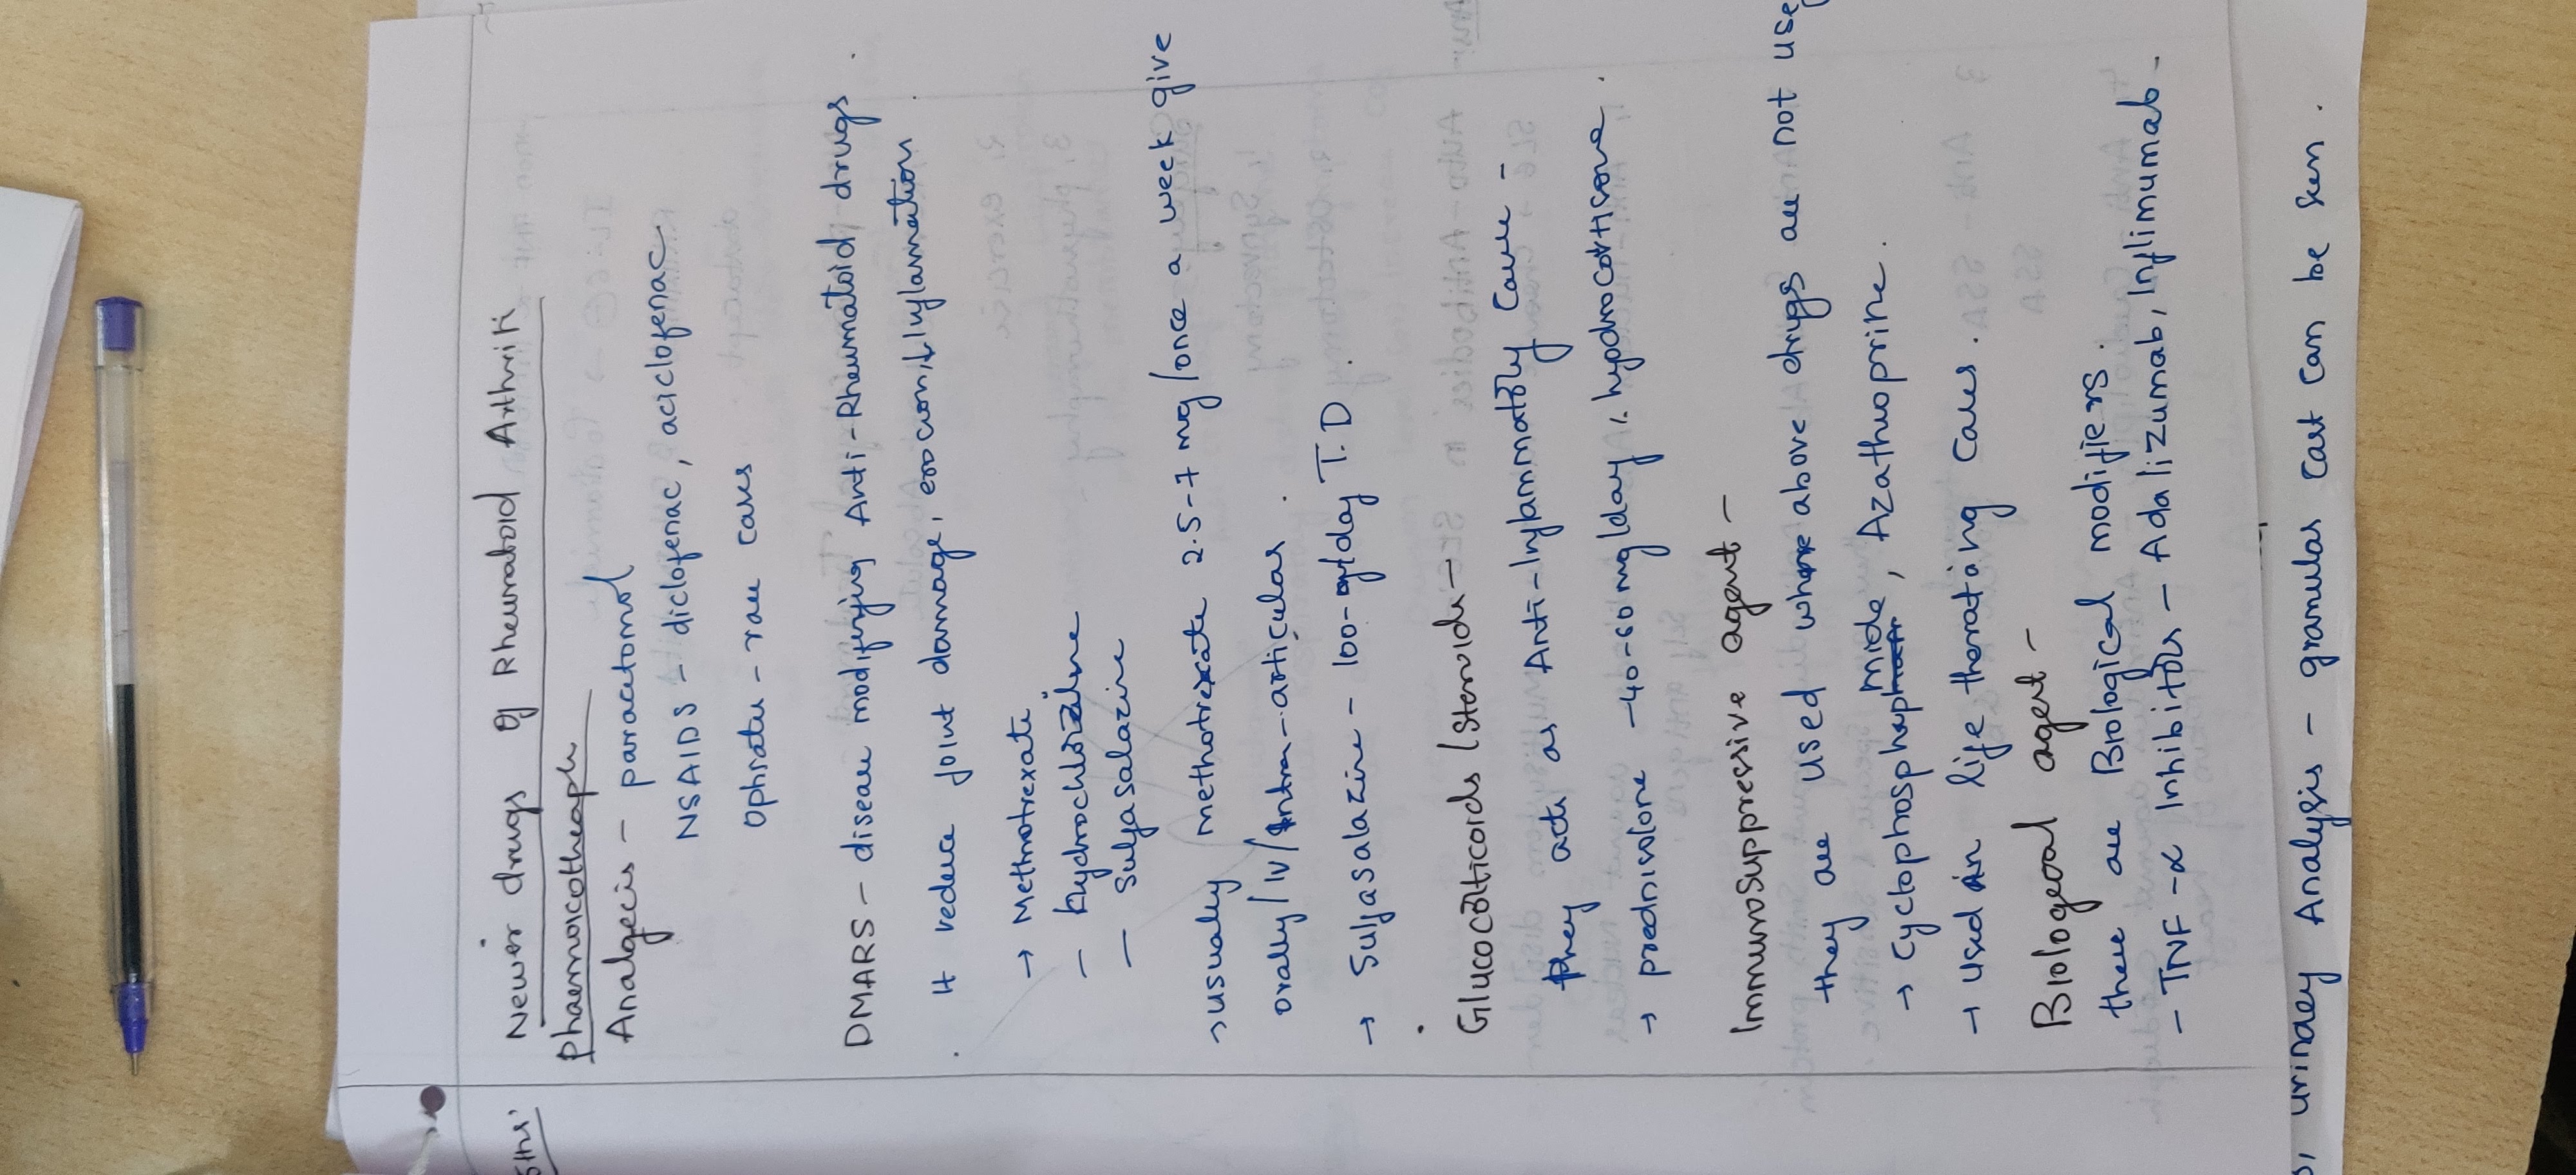 5thi,
Newer drugs of Rheumatoid Arthriti
Phaemoicotheaph
Analgecis - paracetomol
NSAIDS - diclofenac, aciclofenac
Ophiates - rare cases
DMARS - disease modifying Anti-Rheumatoid drugs.
It reduce joint damage, erosion, ↓ Inflammation
→ Methotrexate
- Sulfasalazine
→ usually methotrexate 2.5-7 mg/once a week give
orally/IV/Intra-articular.
→ Sulfasalazine - 100- T.D.
Glucocorticoids (steroids) -
they acts as Anti-Inflammatory Cause -
→ prednisolone -40-60mg/day, hydrocortisone.
Immunosuppressive agent -
they are used where above drugs are not use
→ cyclophosphamide, Azathuoprine.
→ used in life therating cases.
Biologeoal agent -
these are Biological modifiers.
- TNF-α Inhibitors - Adalizumab, Inflimumab -
urinary Analysis - granular cast can be seen.